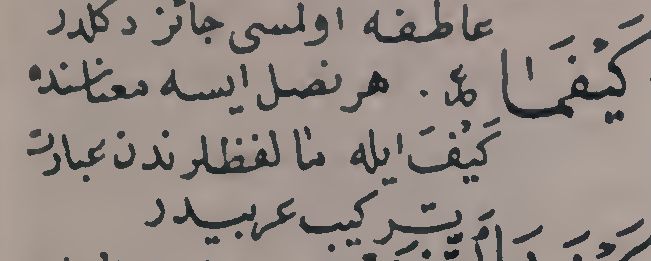 عاطفه اولمسی جائز دكلدر
كَيْفَمَا ع. هر نصل ايسه معناسنده
كَيْفَ ايله ما لفظلرندن عبارت
تركيب عربيدر